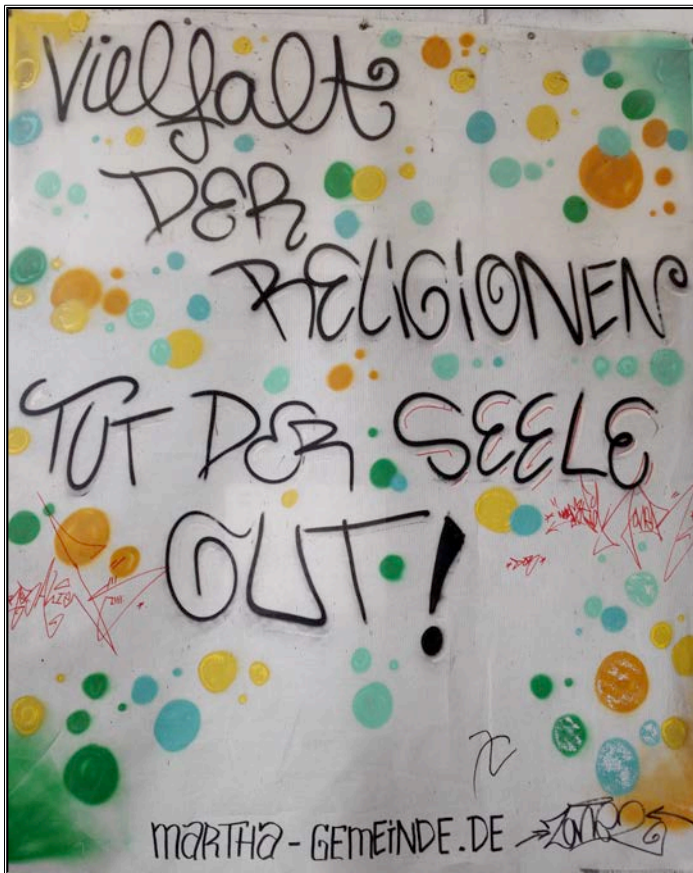 Vielfalt
DER
RELiGiONEN
TUT DER SEELE
GUT!
maRTHa-GEMEiNDE.DE